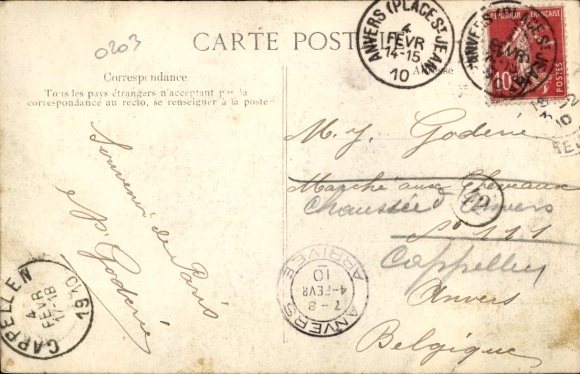 0203
CARTE POSTALE
Correspondance
Tous les pays étrangers n'acceptant pas la
correspondance au recto, se renseigner à la poste
Souvenir de Paris
ANVERS (PLACE ST JEAN)
4
FEVR
14-15
10
REPUBLIQUE FRANÇAISE
10
POSTES
M. J. Goderie
Marché aux Chevaux
Chaussée d'Anvers
No 111
Cappellen
Anvers
Belgique
ANVERS
7-8
4-FEVR
10
ARRIVEE
CAPPELLEN
4
FEVR
17-18
1910